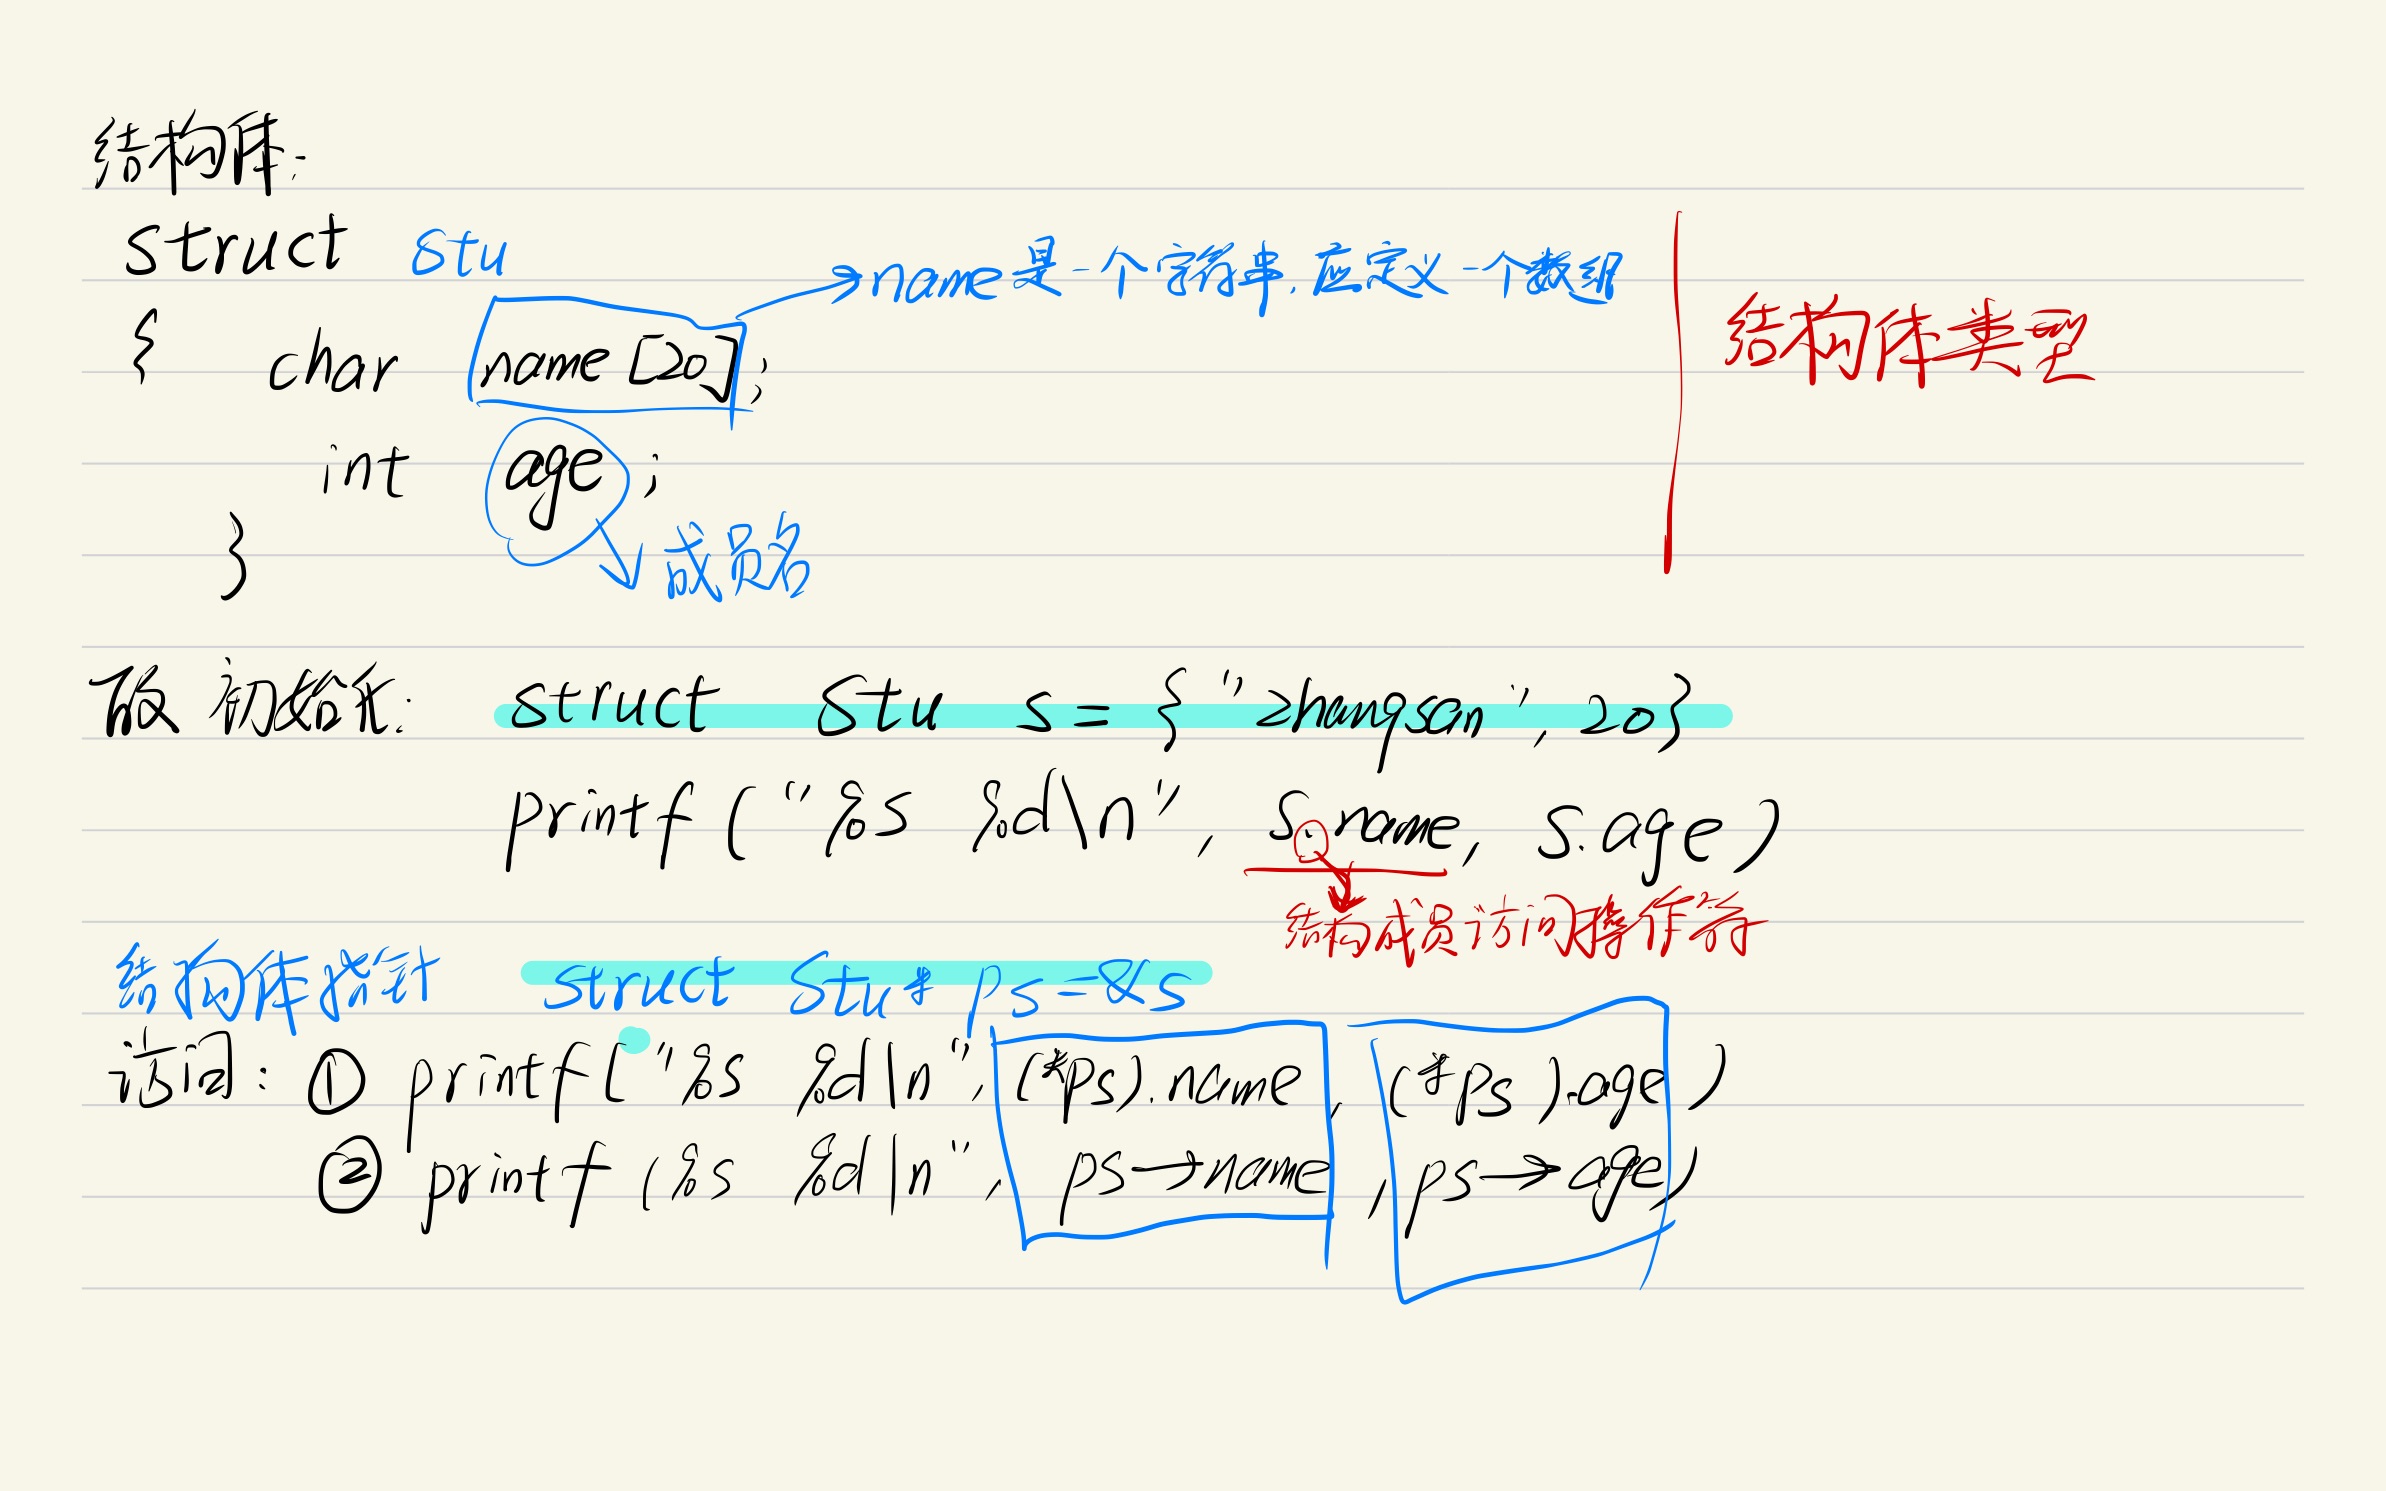 结构体:
struct Stu
→name是一个字符串,应定义一个数组
结构体类型
{ char name[20];
int age;
} 成员名
初始化: struct Stu s={"zhangsan",20}
printf("%s %d\n", s.name, s.age)
结构成员访问操作符
结构体指针 struct Stu* ps=&s
访问: ① printf("%s %d\n", (*ps).name, (*ps).age)
② printf(%s %d\n", ps→name, ps→age)